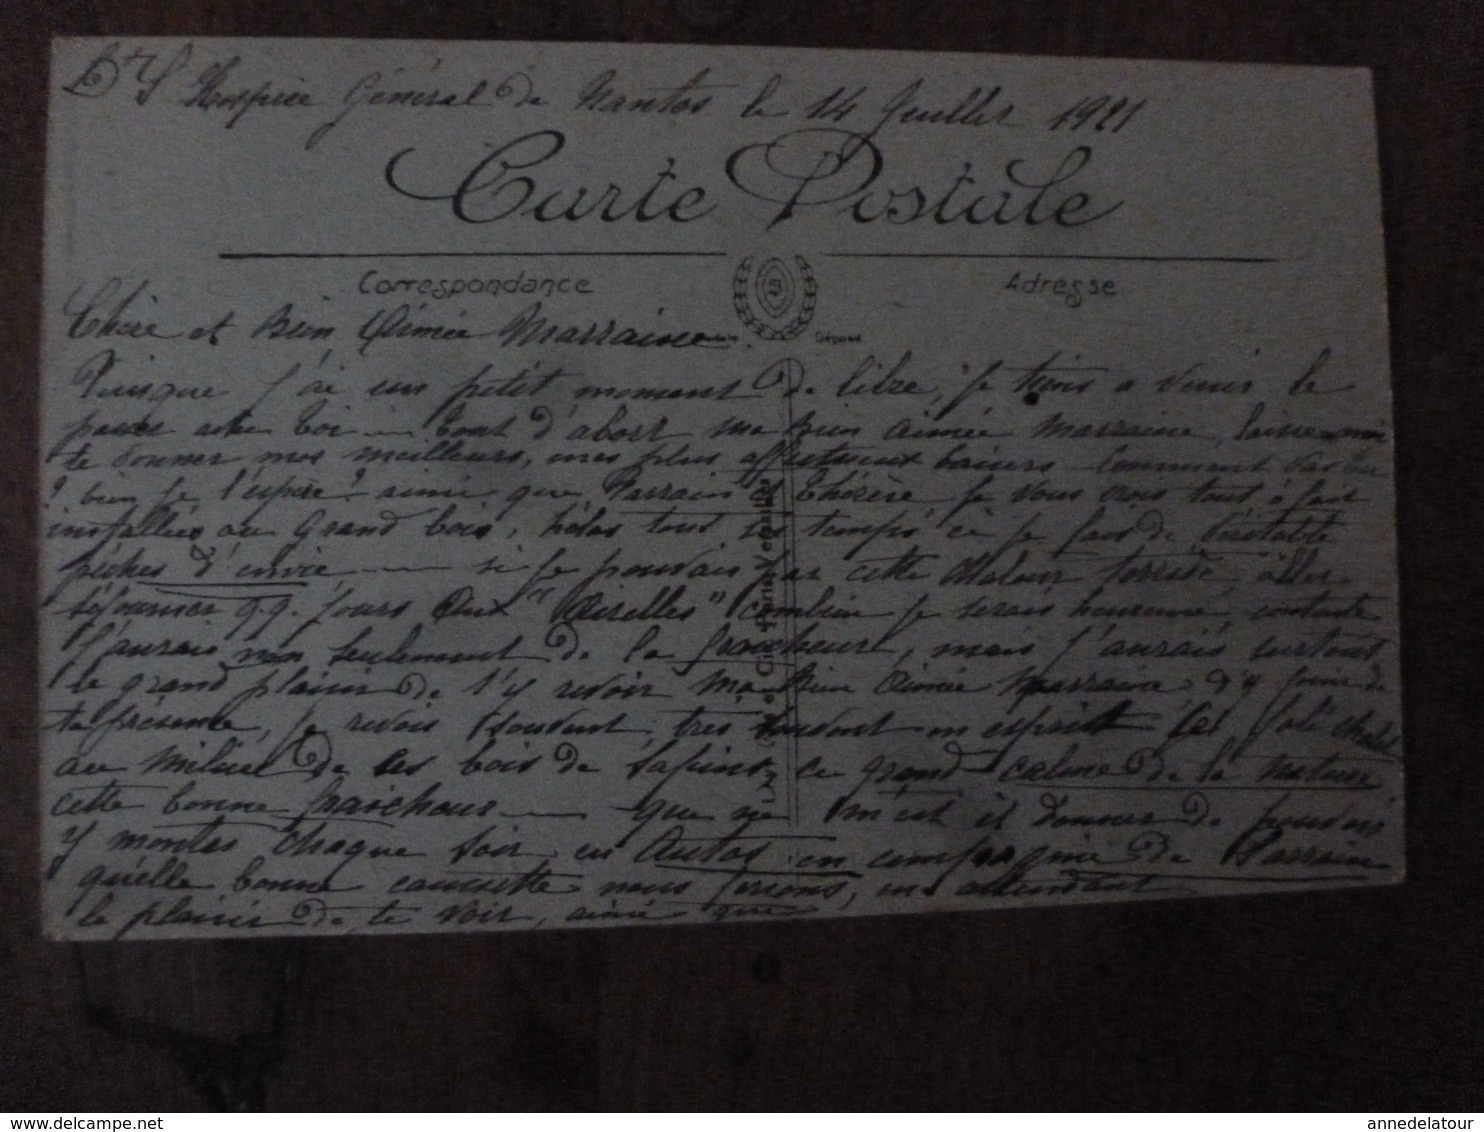 Hospice Général de Nantes le 14 Juillet 1921
Carte Postale
Correspondance
Adresse
B
Chère et Bien Aimée Marraine
Puisque j'ai un petit moment de libre, je viens a venir le
passer avec toi — tout d'abort ma Bien Aimée Marraine, laisse-moi
te donner mes meilleurs, mes plus affectueux baisers — Comment vas tu
? bien je l'espère? aimé que Parrain et Thérèse je vous crois tout à fait
installées au Grand bois, hélas tous se temps ci je fais de Véritable
péches d'envie — si je pouvais par cette chaleur torride, aller
séjourner q.q. jours Aux "Airelles" combien je serais heureuse, contente
j'aurais non seulement de la fraicheur, mais j'aurais surtout
le grand plaisir de t'y revoir Ma Bien Aimée Marraine, d'y jouir de
ta présence, je revois souvent, très souvent en esprit les joli chalet
au milieu de ces bois de sapins, ce grand calme de la nature
cette bonne fraicheur — que ne m'est il donner de pouvoir
y monter chaque soir en Autos en compagnie de Parrain
qu'elle bonne causette nous ferions, en attendant
le plaisir de te voir, aimé que
annedelatour